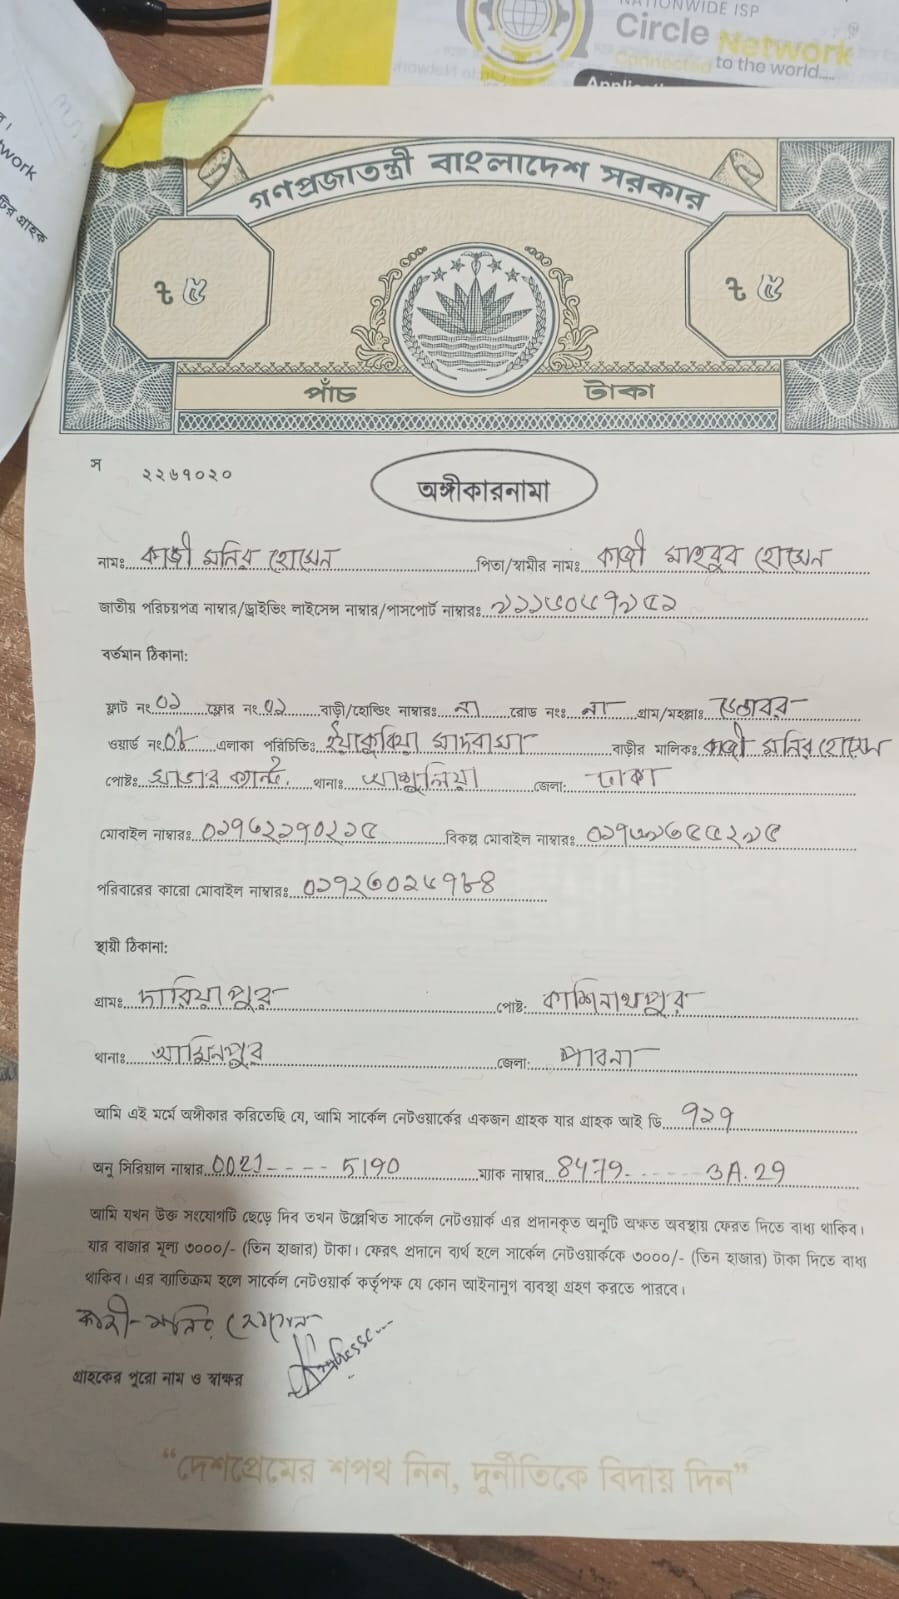 NATIONWIDE ISP
Circle Network
Connected to the world....
গণপ্রজাতন্ত্রী বাংলাদেশ সরকার
৳ ৫ ৳ ৫
পাঁচ টাকা
স ২২৬৭০২০
অঙ্গীকারনামা
নামঃ কাজী মনির হোসেন পিতা/স্বামীর নামঃ কাজী মাহবুব হোসেন
জাতীয় পরিচয়পত্র নাম্বার/ড্রাইভিং লাইসেন্স নাম্বার/পাসপোর্ট নাম্বারঃ
বর্তমান ঠিকানা:
ফ্লাট নং ০১ ফ্লোর নং ০১ বাড়ী/হোল্ডিং নাম্বারঃ না রোড নংঃ না গ্রাম/মহল্লাঃ
ওয়ার্ড নং এলাকা পরিচিতিঃ বাড়ীর মালিকঃ কাজী মনির হোসেন
পোষ্টঃ সাভার ক্যান্ট. থানাঃ আশুলিয়া জেলা: ঢাকা
মোবাইল নাম্বারঃ বিকল্প মোবাইল নাম্বারঃ
পরিবারের কারো মোবাইল নাম্বারঃ
স্থায়ী ঠিকানা:
গ্রামঃ দারিয়াপুর পোষ্ট: কাশিনাথপুর
থানাঃ আমিনপুর জেলা: পাবনা
আমি এই মর্মে অঙ্গীকার করিতেছি যে, আমি সার্কেল নেটওয়ার্কের একজন গ্রাহক যার গ্রাহক আই ডি ৭২৭
অনু সিরিয়াল নাম্বার 0021---- 5190 ম্যাক নাম্বার 8479------ 3A.29
আমি যখন উক্ত সংযোগটি ছেড়ে দিব তখন উল্লেখিত সার্কেল নেটওয়ার্ক এর প্রদানকৃত অনুটি অক্ষত অবস্থায় ফেরত দিতে বাধ্য থাকিব।
যার বাজার মূল্য ৩০০০/- (তিন হাজার) টাকা। ফেরৎ প্রদানে ব্যর্থ হলে সার্কেল নেটওয়ার্ককে ৩০০০/- (তিন হাজার) টাকা দিতে বাধ্য
থাকিব। এর ব্যতিক্রম হলে সার্কেল নেটওয়ার্ক কর্তৃপক্ষ যে কোন আইনানুগ ব্যবস্থা গ্রহণ করতে পারবে।
কাজী মনির হোসেন
গ্রাহকের পুরো নাম ও স্বাক্ষর
“দেশপ্রেমের শপথ নিন, দুর্নীতিকে বিদায় দিন”